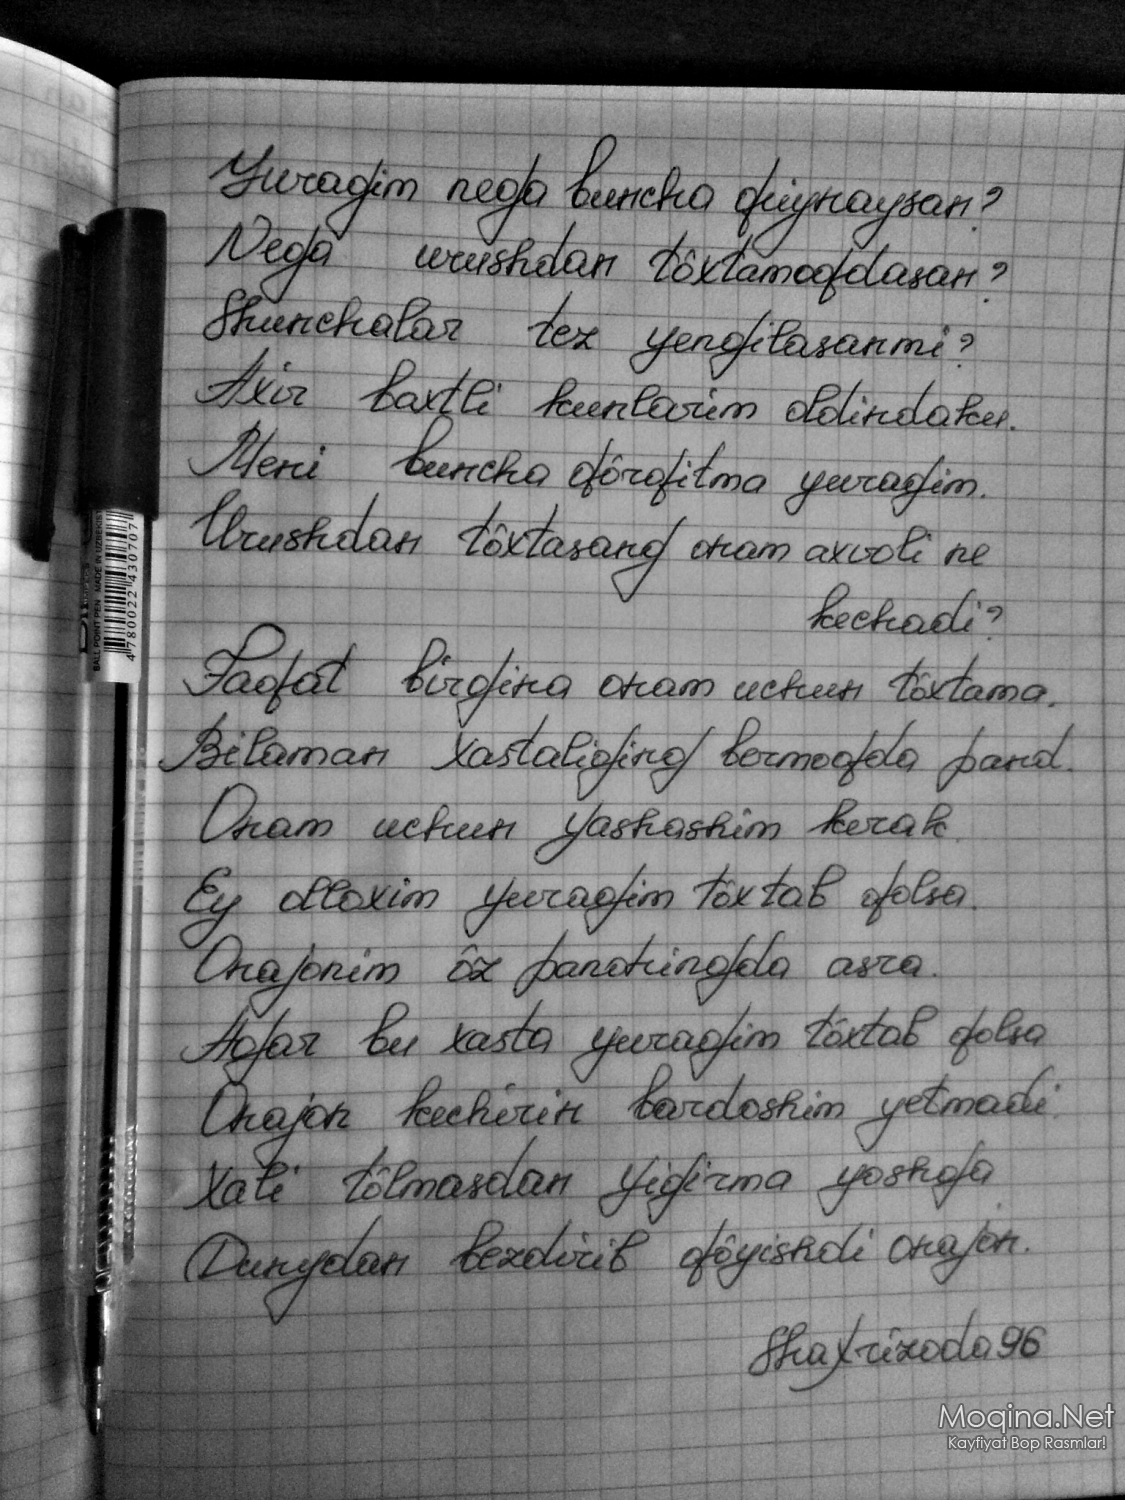 Yuragim nega buncha qiynaysan?
Nega urushdan tôxtamoqdasan?
Shunchalar tez yengilasanmi?
Axir baxtli kunlarim oldindaku.
Meni buncha qôrqitma yuragim.
Urushdan tôxtasang onam axvoli ne
kechadi?
Faqat birgina onam uchun tôxtama.
Bilaman xastaliging bermoqda pand.
Onam uchun yashashim kerak.
Ey olloxim yuragim tôxtab qolsa.
Onajonim ôz panohingda asra.
Agar bu xasta yuragim tôxtab qolsa
Onajon kechirin bardoshim yetmadi.
Xali tôlmasdan yigirma yoshga
Dunydan bezdirib qôyishdi onajon.
Shaxrizoda96
BALL POINT PEN MADE IN UZBEKIS
4780022430707
Moqina.Net
Kayfiyat Bop Rasmlar!